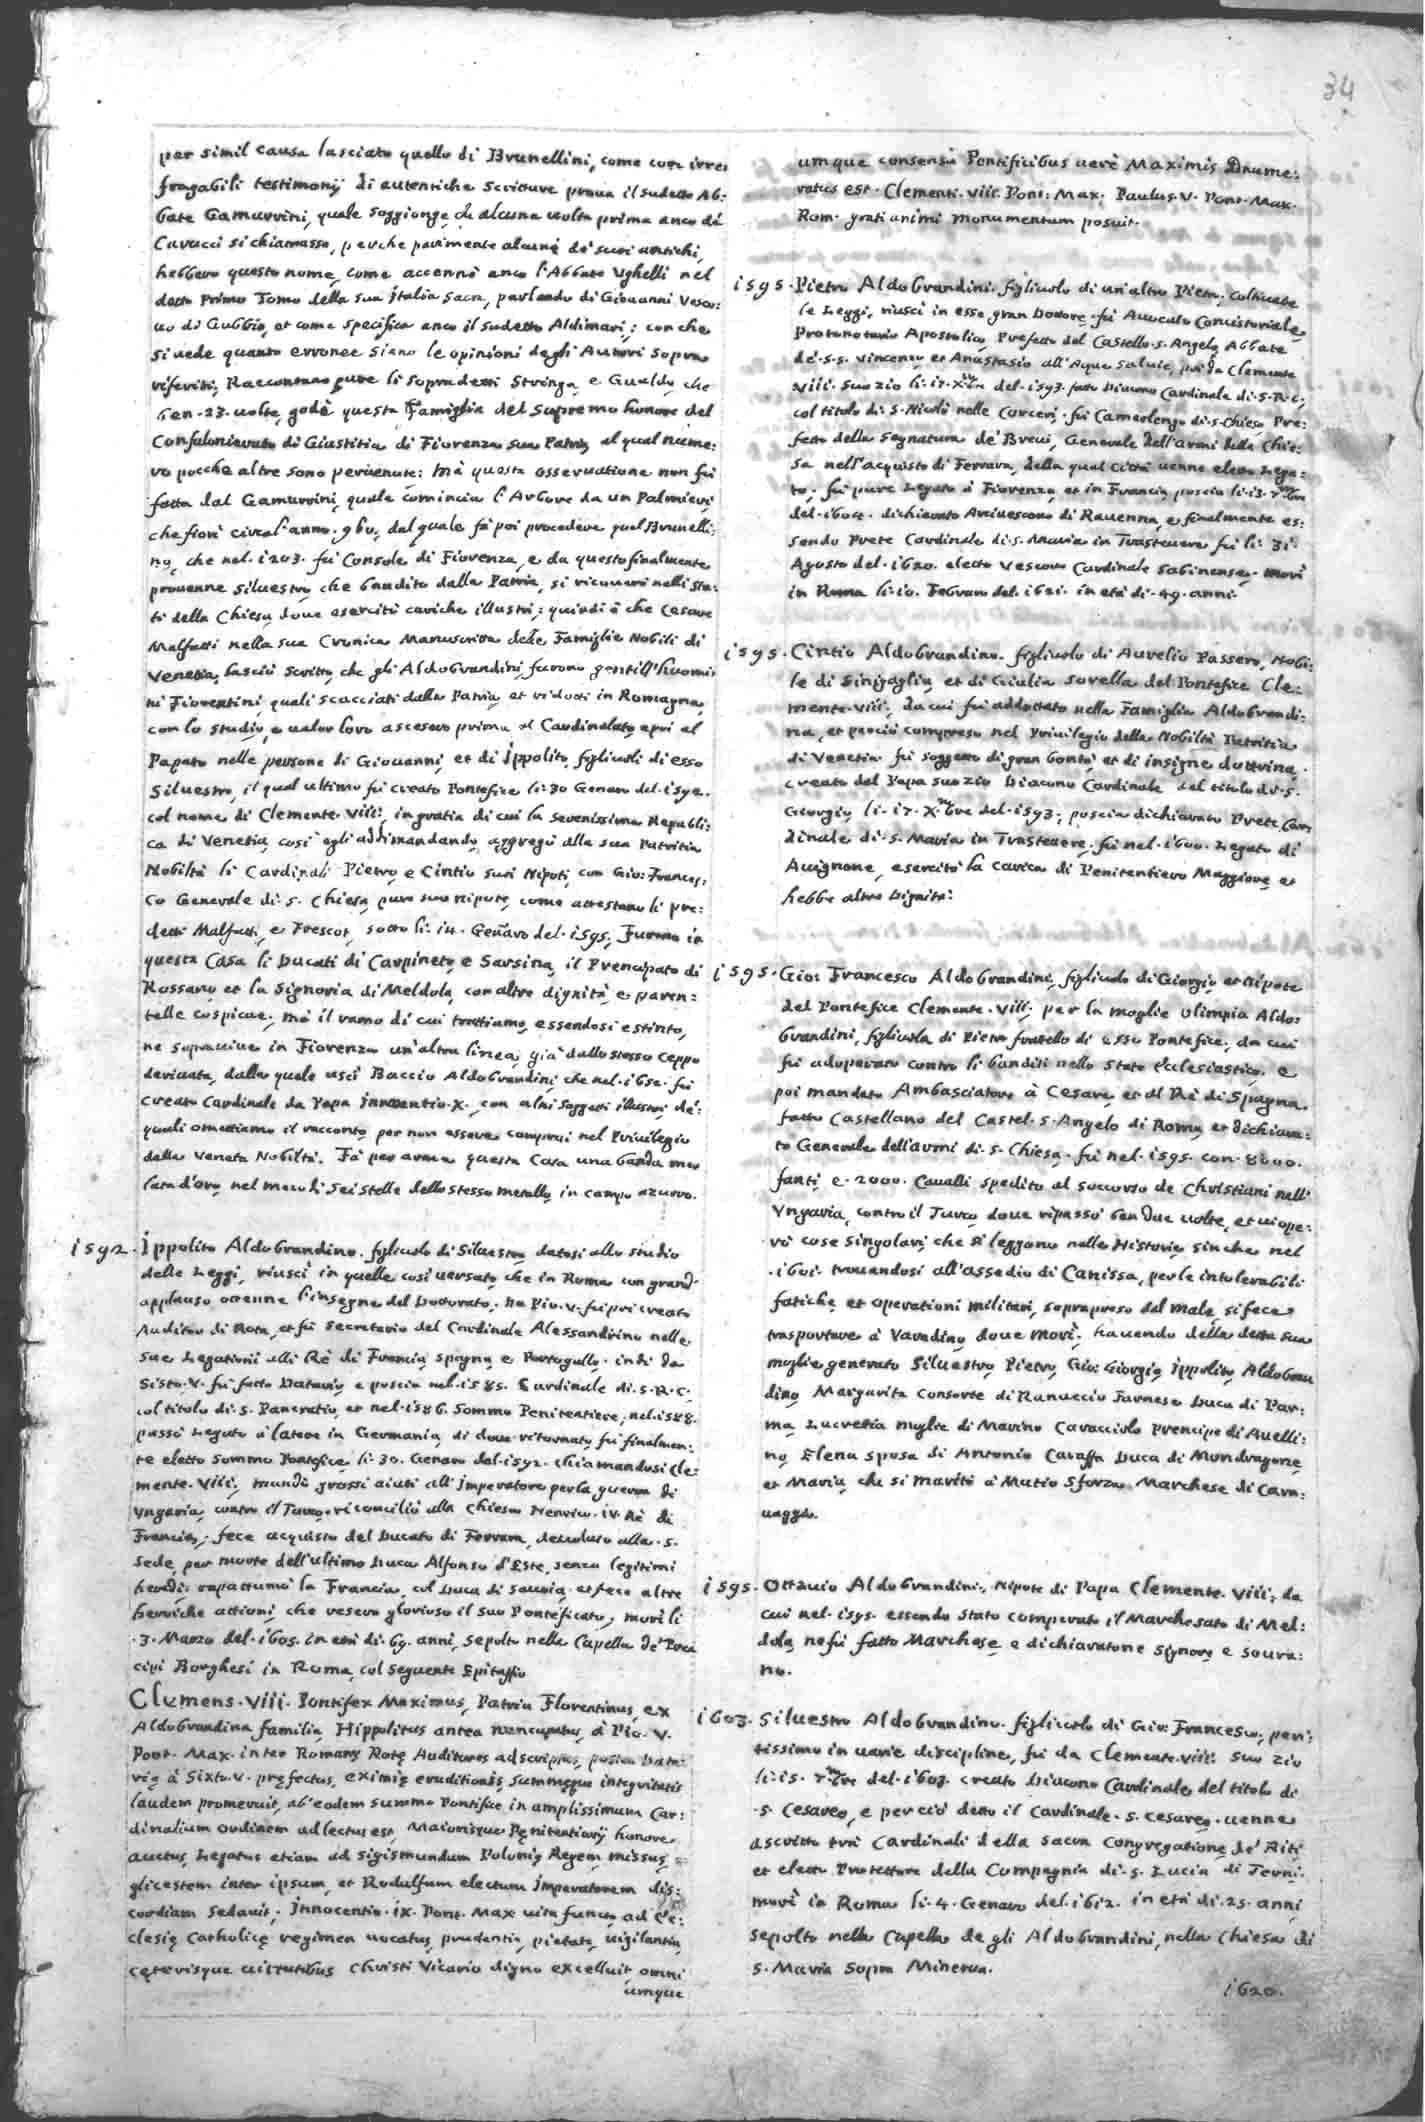 34
per simil causa lasciato quello di Brunellini, come con irre
fragabili testimonij di autentiche scritture proua il sudetto Ab:
bate Gamurrini, quale soggionge, che alcuna uolta prima anco de
Carucci si chiamasse, perche parimente alcuni de' suoi antichi,
hebbero questo nome, come accennò anco l'Abbate Vghelli nel
detto Primo Tomo della sua Italia Sacra, parlando di Giouanni Vesco:
uo di Gubbio, et come specifica anco il sudetto Aldimari; con che
si uede quanto erronee siano le opinioni degli Autori sopra
riferiti; Raccontano pure li sopradetti Stringa, e Gualdo, che
ben .23. uolte godè questa Famiglia del supremo honore del
Confalonierato di Giustitia di Fiorenza sua Patria, al qual nume:
ro pocche altre sono peruenute: mà questa osseruatione non fù
fatta dal Gamurrini, quale comincia l'Arbore da un Palmieri,
che fiorì circa l'anno .960. dal quale fà poi procedere quel Brunelli:
no, che nel .1203. fù Console di Fiorenza, e da questo finalmente
prouenne Siluestro, che bandito dalla Patria, si ricouerò nelli sta:
ti della Chiesa doue esercitò cariche illustri; quindi è che Cesare
Malfatti nella sua Cronica Manuscritta delle Famiglie Nobili di
Venetia, lasciò scritto, che gli Aldobrandini furono gentill'huomi
ni Fiorentini quali scacciati dalla Patria, et ridotti in Romagna,
con lo studio, e ualor loro ascesero prima al Cardinalato, e poi al
Papato nelle persone di Giouanni, et di Ippolito, figliuoli di esso
Siluestro, il qual ultimo fù creato Pontefice li .30 Genaro del .1592.
col nome di Clemente .VIII., in gratia di cui la Serenissima Republi:
ca di Venetia, così egli addimandando, aggregò alla sua Patritia
Nobiltà li Cardinali Pietro, e Cintio suoi Nipoti, con Gio: Frances:
co Generale di .S. Chiesa, pure suo nipote, come attestano li pre:
detti Malfatti, e Frescot, sotto li .14. Genaro del .1595. Furono in
questa Casa li Ducati di Carpineto, e Sarsina, il Prencipato di
Rossano, et la Signoria di Meldola, con altre dignità, e paren:
telle cospicue; mà il ramo di cui trattiamo, essendosi estinto,
ne soprauiue in Fiorenza un'altra linea, già dallo stesso ceppo
deriuata, dalla quale uscì Baccio Aldobrandini, che nel .1652. fù
creato Cardinale da Papa Innocentio .X., con altri soggetti illustri, de:
quali omettiamo il racconto, per non essere compresi nel Priuilegio
della Veneta Nobiltà. Fà per arma questa Casa una banda mer
lata d'oro, nel mezzo di sei stelle dello stesso metallo, in campo azurro.
1592. Ippolito Aldobrandino. figliuolo di Siluestro, datosi allo studio
delle Leggi, riuscì in quelle così uersato, che in Roma con grand'
applauso ottenne l'insegne del Dottorato. Da Pio .V. fù poi creato
Auditor di Rota, et fù Secretario del Cardinale Alessandrino nelle
sue Legationi alli Rè di Francia, Spagna, e Portogallo. indi da
Sisto .V. fù fatto Datario, e poscia nel .1585. Cardinale di .S.R.C.
col titolo di .S. Pancratio, et nel .1586. Sommo Penitentiere; nel .1588.
passò Legato à latere in Germania, di doue ritornato, fù finalmen:
te eletto Sommo Pontefice li .30. Genaro del .1592. chiamandosi Cle:
mente .VIII; mandò grossi aiuti all'Imperatore per la guerra di
Vngaria, contro il Turco. riconciliò alla Chiesa Henrico .IV. Rè di
Francia; fece acquisto del Ducato di Ferrara, deuoluto alla .S.
Sede, per morte dell'ultimo Duca Alfonso d'Este, senza legitimi
heredi; rapattumò la Francia, col Duca di Sauoia, et fece altre
heroiche attioni, che resero glorioso il suo Pontificato; morì li
.3. Marzo del .1605. in età di .69. anni, sepolto nella Capella de' Pren
cipi Borghesi in Roma, col seguente Epitaffio
Clemens .VIII. Pontifex Maximus, Patria Florentinus, ex
Aldobrandina familia, Hippolitus antea nuncupatus, à Pio .V.
Pont. Max. inter Romanę Rotę Auditores adscriptus, posica Data:
rię à Sixto .V. pręfectus, eximię eruditionis, summęque integritatis
laudem promeruit, ab eodem summo Pontifice in amplissimum Car:
dinalium ordinem adlectus est, Maiorisque Pęnitentiarij honore
auctus, Legatus etiam ad Sigismundum Polonię Regem missus,
glicestem inter ipsum, et Rodulfum electum Imperatorem dis:
cordiam sedauit; Innocentio .IX. Pont. Max uita functo, ad Ec:
clesię Catholicę regimen uocatus, prudentia, pietate, uigilantia,
cęterisque uirtutibus Christi Vicario digno excelluit, omni
umque
umque consensu Pontificibus uerè Maximis Dnume:
ratus est. Clementi .VIII. Pont: Max. Paulus .V. Pont. Max.
Rom. grati animi monumentum posuit.
1595. Pietro Aldobrandini. figliuolo di un'altro Pietro, coltiuate
le Leggi, riuscì in esse gran Dottore. fù Auocato Concistoriale,
Protonotario Apostolico, Prefetto del Castello .S. Angelo, Abbate
de' .S.S. Vincenzo, et Anastasio all'Aque Saluie, poi da Clemente
VIII. suo zio li .17. Xbre del .1593. fatto Diacono Cardinale di .S.R.C;
col titolo di .S. Nicolò nelle Carceri. fù Camerlengo di .S. Chiesa, Pre:
fetto della Segnatura de' Breui, Generale dell'armi della Chie:
sa nell'acquisto di Ferrara, della qual Città uenne eletto Lega:
to. fù pure Legato à Fiorenza, et in Francia, poscia li .13. 7bre
del .1604. dichiarato Arciuescouo di Rauenna, e finalmente es:
sendo Prete Cardinale di .S. Maria in Trasteuere, fù li .31.
Agosto del .1620. eletto Vescouo Cardinale Sabinense. morì
in Roma li .10. Febraro del .1621. in età di .49. anni.
1595. Cintio Aldobrandino. figliuolo di Aurelio Passero, Nobi:
le di Sinigaglia, et di Giulia sorella del Pontefice Cle:
mente .VIII; da cui fù addottato nella Famiglia Aldobrandi:
na, et perciò compreso nel Priuilegio della Nobiltà Patritia
di Venetia. fù soggetto di gran bontà, et di insigne dottrina.
creato dal Papa suo zio Diacono Cardinale del titolo di .S.
Giorgio, li .17. Xbre del .1593; poscia dichiarato Prete Car
dinale di .S. Maria in Trasteuere. fù nel .1600. Legato di
Auignone, esercitò la carica di Penitentiero Maggiore, et
hebbe altre Dignità.
1595. Gio: Francesco Aldobrandini, figliuolo di Giorgio, et nipote
del Pontefice Clemente .VIII; per la moglie Olimpia Aldo:
brandini, figliuola di Pietro fratello di esso Pontefice, da cui
fù adoperato contro li banditi nello Stato Ecclesiastico. e
poi mandato Ambasciatore à Cesare, et al Rè di Spagna.
fatto Castellano del Castel .S. Angelo di Roma, et dichiara:
to Generale dell'armi di .S. Chiesa. fù nel .1595. con .8000.
fanti, e .2000. Caualli spedito al soccorso de Christiani nell'
Vngaria, contro il Turco, doue ripassò ben due uolte, et ui ope:
rò cose singolari, che si leggono nelle Historie, sinche nel
.1601. trouandosi all'assedio di Canissa, per le intolerabili
fatiche, et operationi militari, soprapreso dal male, si fece
trasportare à Varadino, doue morì. hauendo della detta sua
moglie generato Siluestro, Pietro, Gio: Giorgio, Ippolito, Aldobran
dino, Margarita Consorte di Ranuccio Farnese Duca di Par:
ma, Lucretia moglie di Marino Caracciolo Prencipe di Auelli:
no, Elena sposa di Antonio Caraffa Duca di Mondragone,
et Maria, che si maritò à Mutio Sforza Marchese di Cara:
uaggio.
1595. Ottauio Aldobrandini, Nipote di Papa Clemente .VIII; da
cui nel .1595. essendo stato comperato il Marchesato di Mel:
dola, ne fù fatto Marchese, e dichiaratone Signore e Soura:
no.
1603. Siluestro Aldobrandino. figliuolo di Gio: Francesco, peri:
tissimo in uarie discipline, fù da Clemente .VIII. suo zio
li .15. 7bre del .1603. creato Diacono Cardinale, del titolo di
.S. Cesareo, e perciò detto il Cardinale .S. Cesareo. uenne
ascritto trà Cardinali della Sacra Congregatione de' Riti
et eletto Protettore della Compagnia di .S. Lucia di Terni.
morì in Roma li .4. Genaro del .1612. in età di .25. anni,
sepolto nella Capella de gli Aldobrandini, nella Chiesa di
S. Maria Sopra Minerua.
1620.